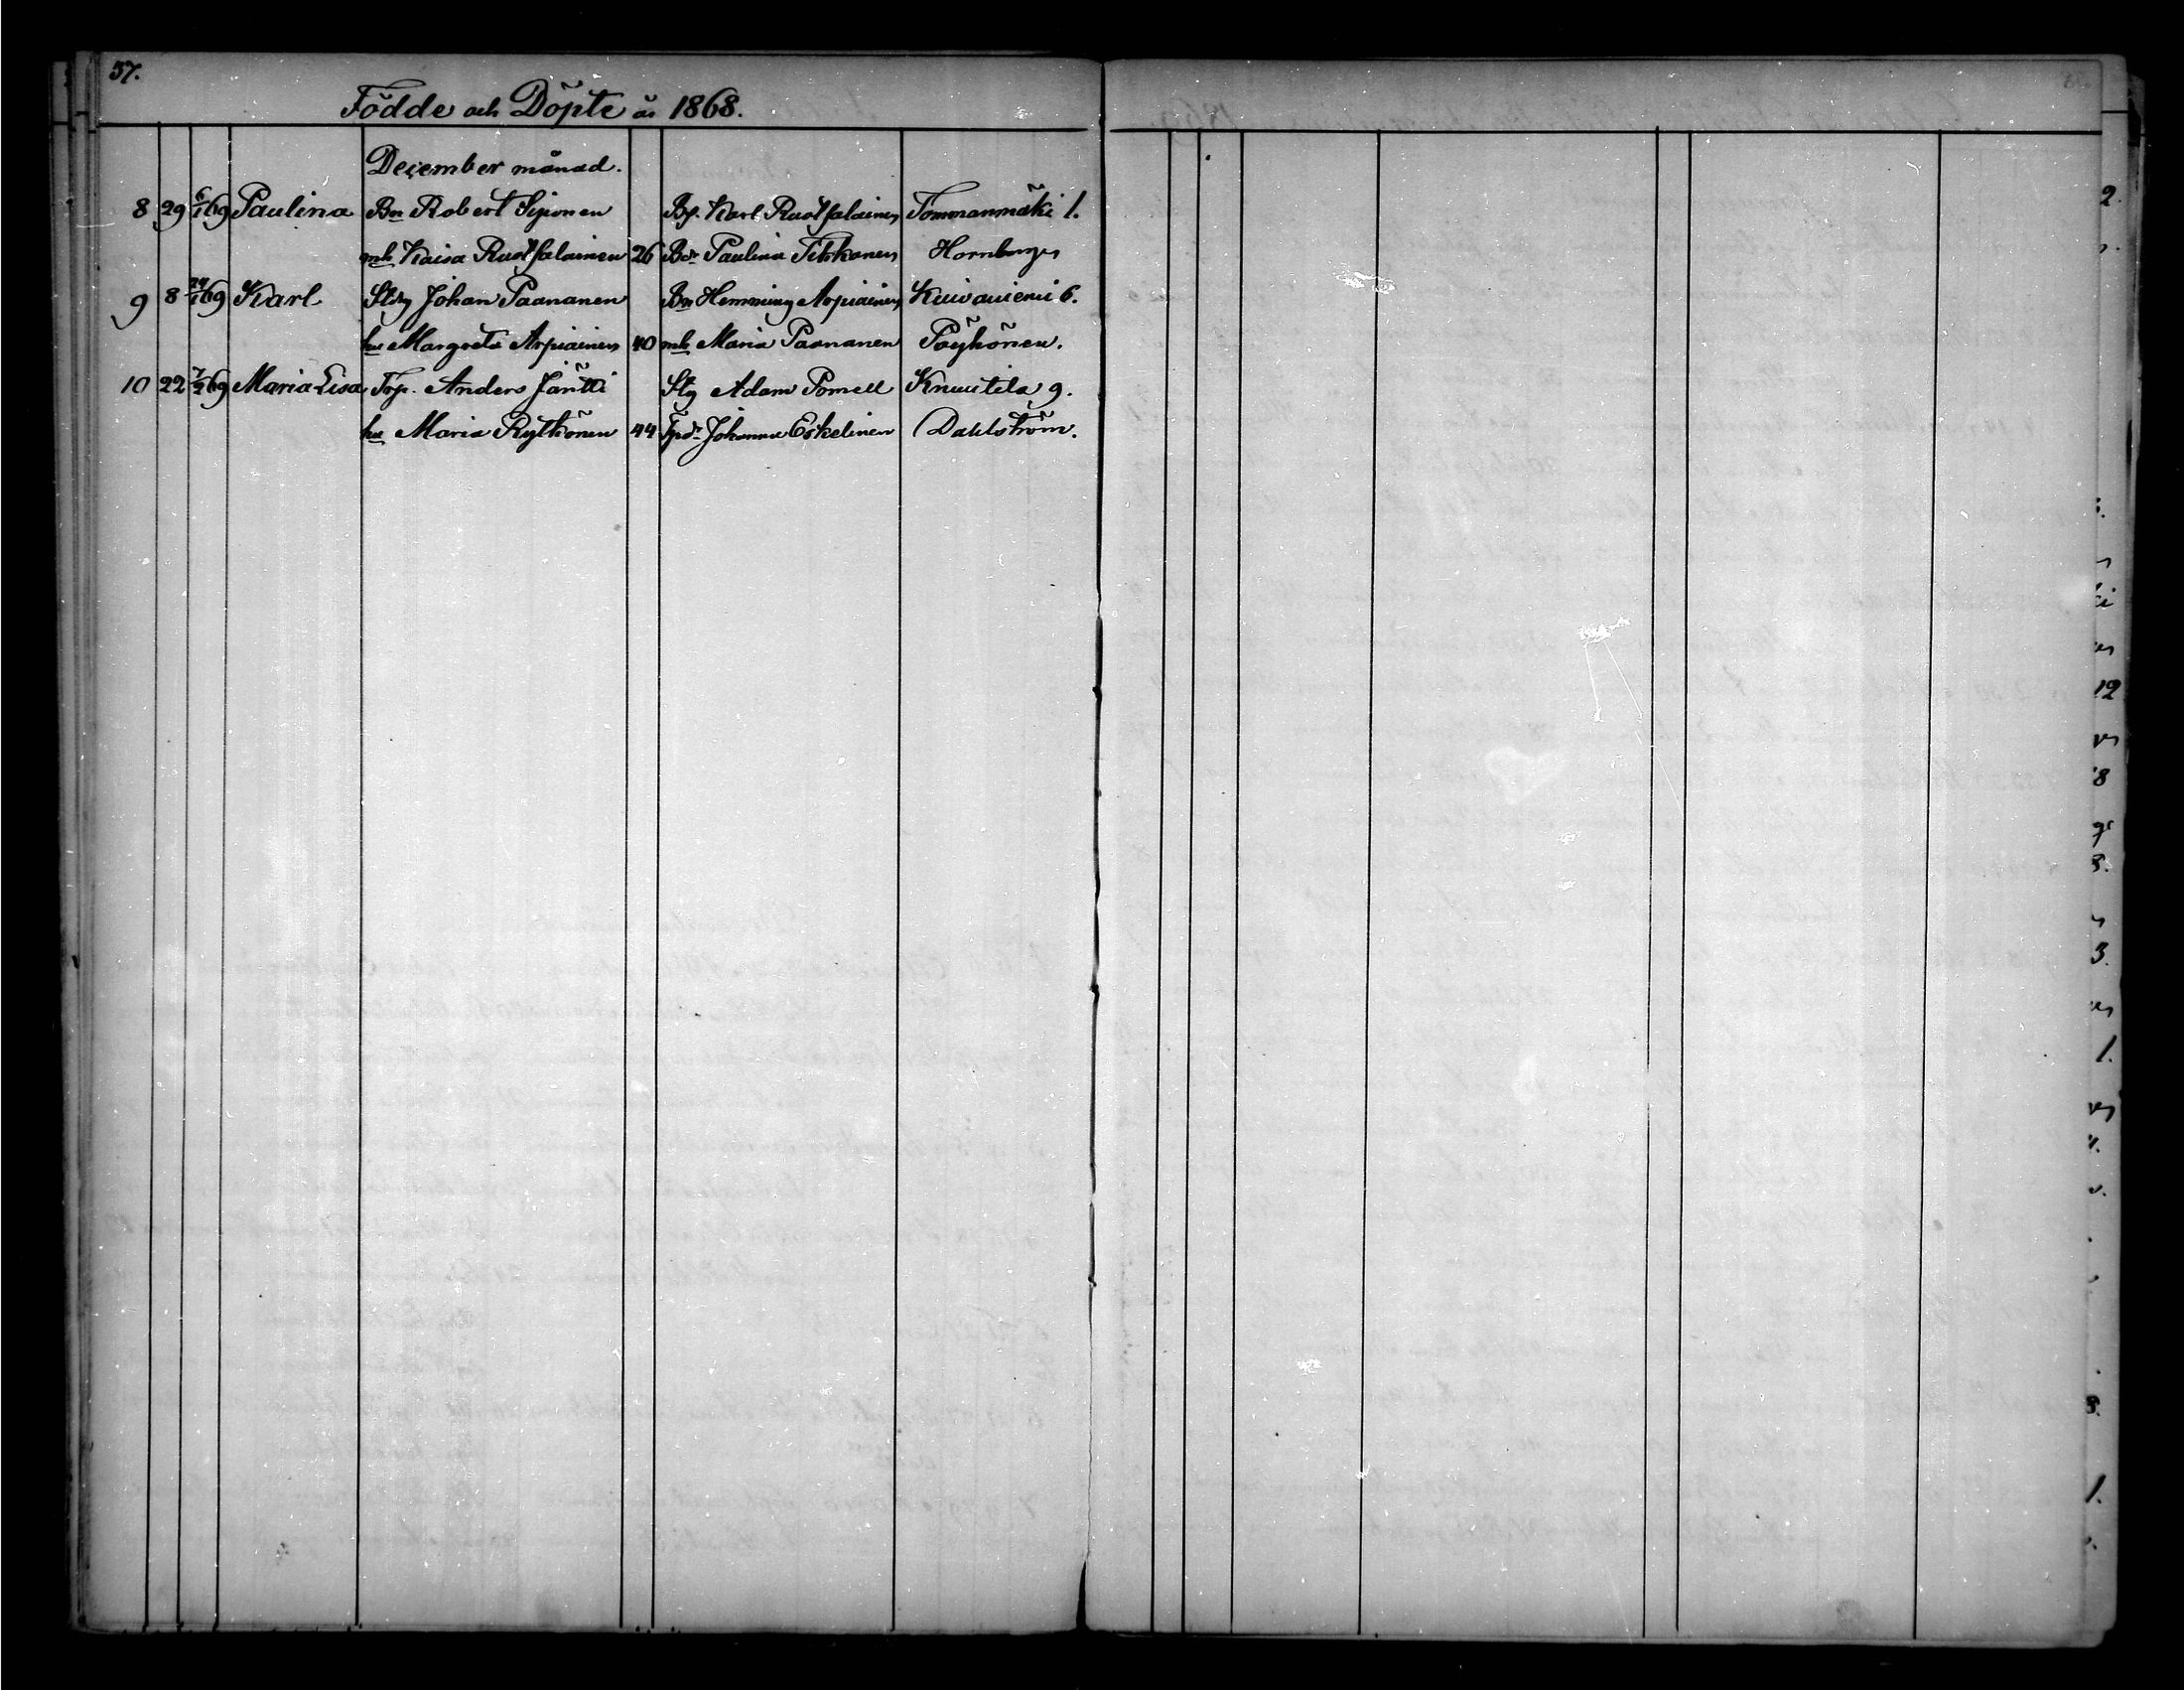 57.
Födde och Döpte år 1868.
December månad.
8 29 6/1 69 Paulina Bn Robert Siponen Bs. Karl Ruotsalainen Tommanmäki 1.
mh Kaisa Ruotsalainen 26 Bdr Paulina Tikkanen Hornborg
9 8 24/1 69 Karl Stdg Johan Paananen Bn Hemming Arpiainen Kuivaniemi 6.
hu Margreta Arpiainen 40 mh Maria Paananen Pöyhönen.
10 22 7/2 69 Maria Lisa Trp. Anders Jäntti Stg Adam Pomell Knuutila 9.
hu Maria Rytkönen 44 Tpdr Johanna Eskelinen Dahlström.
2.
12
8
3.
3.
1.
3.
1.